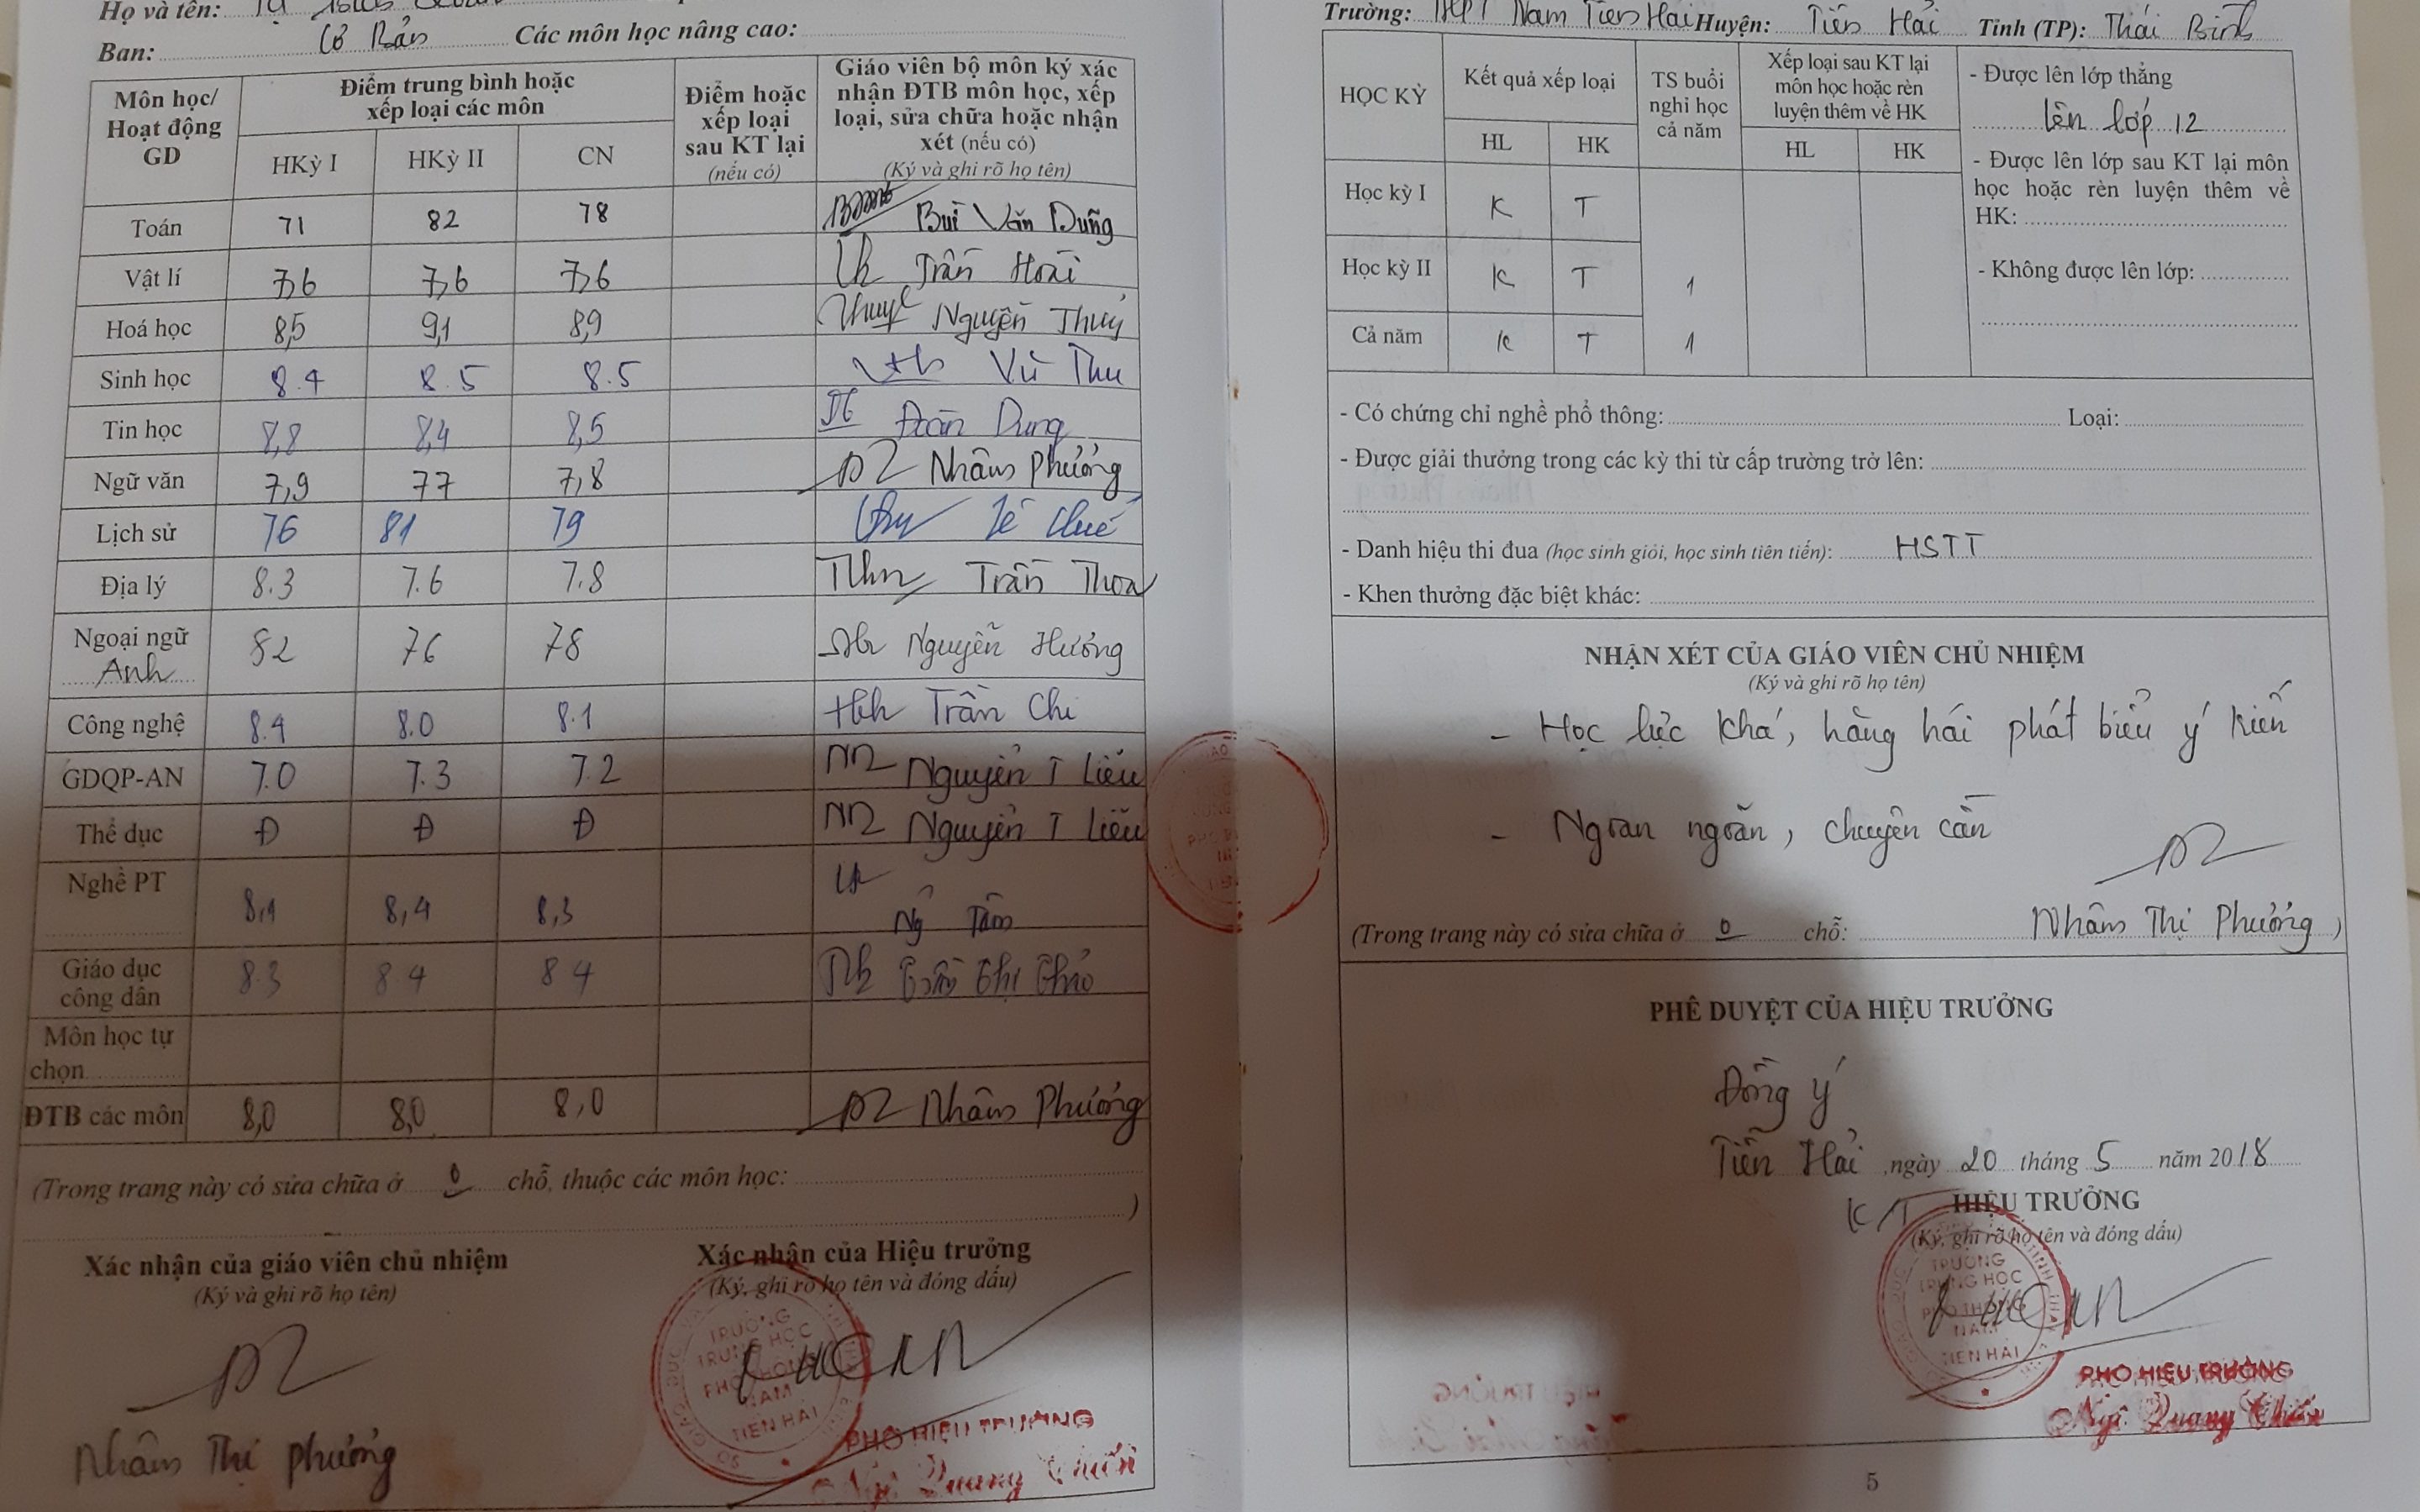 Họ và tên: Tạ
Ban: Cơ Bản Các môn học nâng cao:
Môn học/ Hoạt động GD
Điểm trung bình hoặc xếp loại các môn
Điểm hoặc xếp loại sau KT lại (nếu có)
Giáo viên bộ môn ký xác nhận ĐTB môn học, xếp loại, sửa chữa hoặc nhận xét (nếu có)
(Ký và ghi rõ họ tên)
HKỳ I HKỳ II CN
Toán 71 82 78 Bùi Văn Dũng
Vật lí 7,6 7,6 7,6 Trần Hoài
Hoá học 8,5 9,1 8,9 Nguyễn Thuý
Sinh học 8.4 8.5 8.5 Vũ Thu
Tin học 8,8 8,4 8,5 Đoàn Dung
Ngữ văn 7,9 77 7,8 Nhâm Phượng
Lịch sử 76 81 79
Địa lý 8.3 7.6 7.8 Trần Thoa
Ngoại ngữ Anh 82 76 78 Nguyễn Hương
Công nghệ 8.4 8.0 8.1 Trần Chi
GDQP-AN 7.0 7.3 7.2 Nguyễn T Liễu
Thể dục Đ Đ Đ Nguyễn T Liễu
Nghề PT 8,1 8,4 8,3 Tâm
Giáo dục công dân 8.3 8 4 8 4
Môn học tự chọn
ĐTB các môn 8,0 8,0 8,0 Nhâm Phượng
(Trong trang này có sửa chữa ở 0 chỗ, thuộc các môn học: )
Xác nhận của giáo viên chủ nhiệm
(Ký và ghi rõ họ tên)
Nhâm Thị Phượng
Xác nhận của Hiệu trưởng
(Ký, ghi rõ họ tên và đóng dấu)
TRƯỜNG
TRUNG HỌC
PHỔ THÔNG
NAM
TIỀN HẢI
PHÓ HIỆU TRƯỞNG
Ngô Quang Chiến
Trường: THPT Nam Tiền Hải Huyện: Tiền Hải Tỉnh (TP): Thái Bình
HỌC KỲ
Kết quả xếp loại
TS buổi nghỉ học cả năm
Xếp loại sau KT lại môn học hoặc rèn luyện thêm về HK
HL HK HL HK
Học kỳ I K T
Học kỳ II K T 1
Cả năm K T 1
- Được lên lớp thẳng
lên lớp 12
- Được lên lớp sau KT lại môn
học hoặc rèn luyện thêm về
HK:
- Không được lên lớp:
- Có chứng chỉ nghề phổ thông: Loại:
- Được giải thưởng trong các kỳ thi từ cấp trường trở lên:
- Danh hiệu thi đua (học sinh giỏi, học sinh tiên tiến): HSTT
- Khen thưởng đặc biệt khác:
NHẬN XÉT CỦA GIÁO VIÊN CHỦ NHIỆM
(Ký và ghi rõ họ tên)
- Học lực khá, hăng hái phát biểu ý kiến
- Ngoan ngoãn, chuyên cần
Nhâm Thị Phượng
(Trong trang này có sửa chữa ở 0 chỗ: )
PHÊ DUYỆT CỦA HIỆU TRƯỞNG
Đồng ý
Tiền Hải, ngày 20 tháng 5 năm 2018
K/T HIỆU TRƯỞNG
(Ký, ghi rõ họ tên và đóng dấu)
TRƯỜNG
TRUNG HỌC
PHỔ THÔNG
NAM
TIỀN HẢI
PHÓ HIỆU TRƯỞNG
Ngô Quang Chiến
5